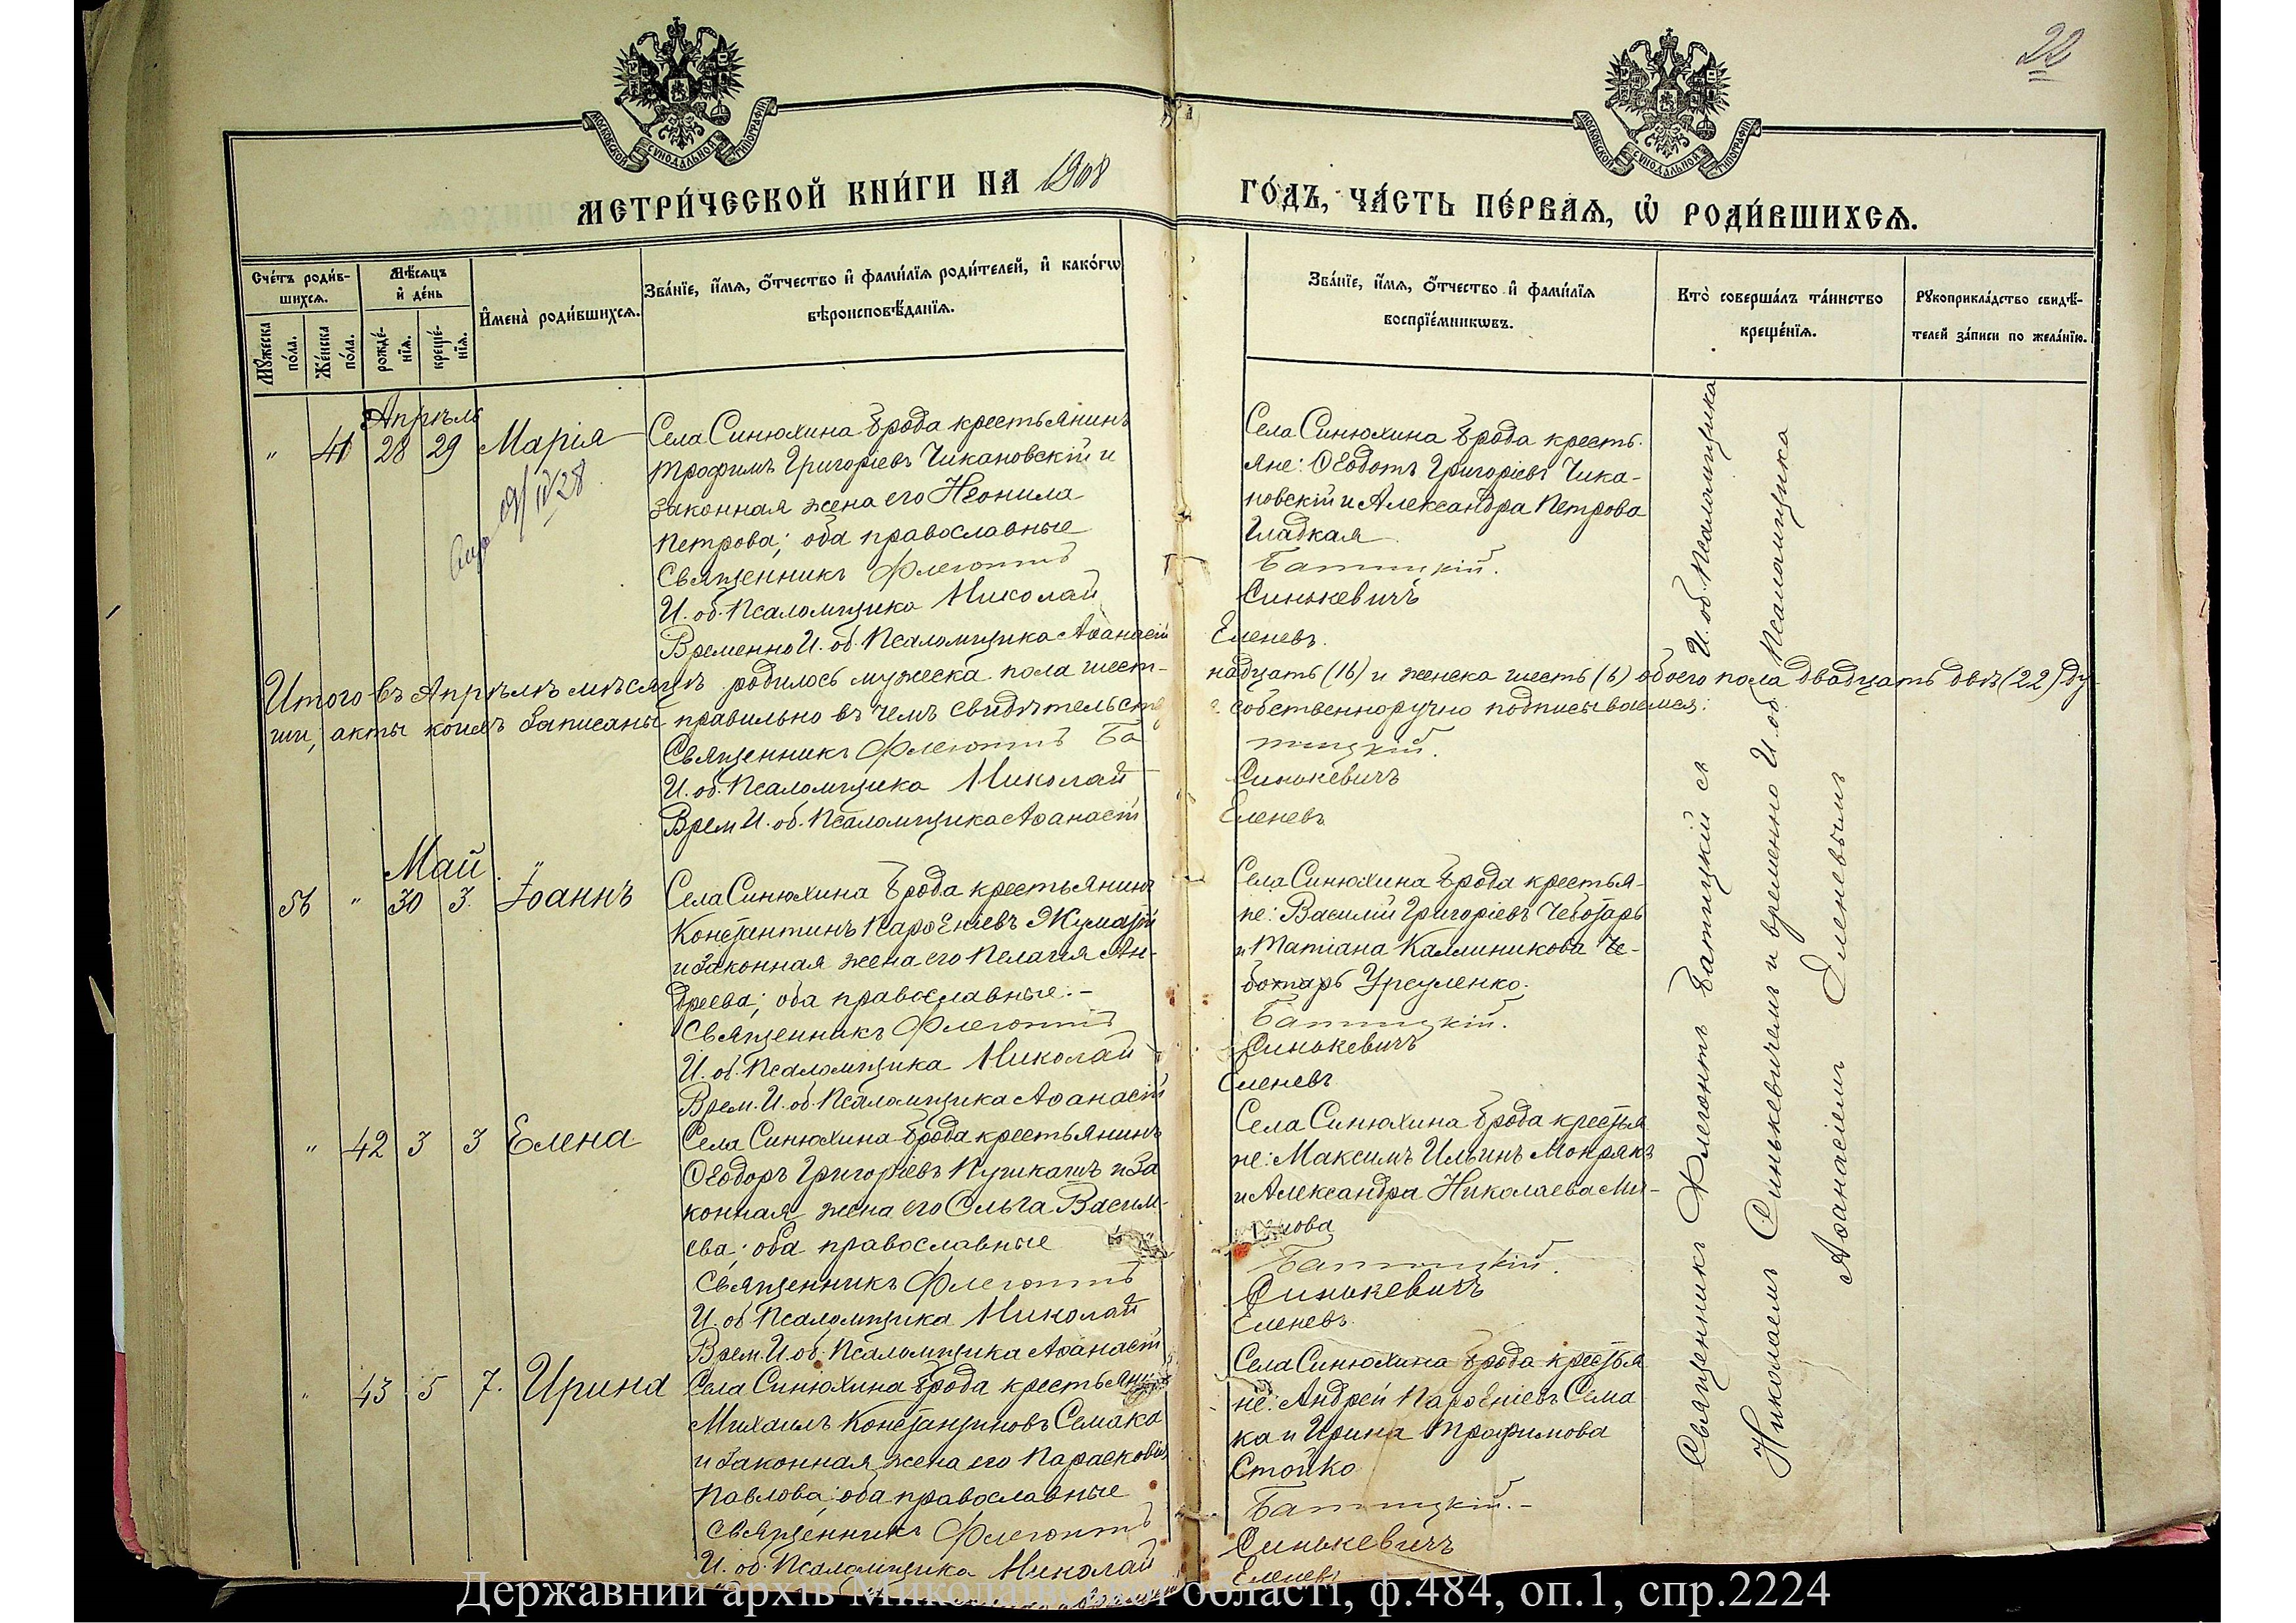 22
МОСКОВСКОЙ СѴНОДАЛЬНОЙ ТИПОГРАФІИ
МОСКОВСКОЙ СѴНОДАЛЬНОЙ ТИПОГРАФІИ
МЕТРИ́ЧЕСКОЙ КНИ́ГИ НА 1908
ГО́ДЪ, ЧА́СТЬ ПЕ́РВАѦ, Ѽ РОДИ́ВШИХСѦ.
Сче́тъ роди́в-
шихсѧ.
Мꙋ́жеска по́ла.
Же́нска по́ла.
Мѣ́сѧцъ
и҆ де́нь
рожде́-
нїѧ.
креще́-
нїѧ.
И҆мена̀ роди́вшихсѧ.
Зва́нїе, и҆́мѧ, ѻ҆́тчество и҆ фами́лїѧ роди́телей, и҆ како́гѡ
вѣроисповѣ́данїѧ.
Зва́нїе, и҆́мѧ, ѻ҆́тчество и҆ фами́лїѧ
воспрїе́мникѡвъ.
Кто̀ соверша́лъ та́инство
креще́нїѧ.
Рꙋкоприкла́дство свидѣ́-
телей за́писи по жела́нїю.
Апрѣль
" 41 28 29 Марія
Села Синюхина Брода крестьянинъ
Трофимъ Григоріевъ Чикановскій и
законная жена его Неонила
Петрова; оба православные
Священникъ Флегонтъ
И. об. Псаломщика Николай
Временно И. об. Псаломщика Аѳанасій
Села Синюхина Брода кресть-
яне: Ѳеодотъ Григоріевъ Чика-
новскій и Александра Петрова
Гладкая
Батицкій.
Синькевичъ
Еленевъ.
Итого въ Апрѣлѣ мѣсяцѣ родилось мужеска пола шест-
надцать (16) и женска шесть (6) обоего пола двадцать двѣ (22) ду-
ши, акты коихъ записаны правильно въ чемъ свидѣтельст
собственноручно подписываемся:
Священникъ Флегонтъ Ба
тицкій.
И. об. Псаломщика Николай
Синькевичъ
Врем И. об. Псаломщика Аѳанасій
Еленевъ
Май
56 " 30 3. Іоаннъ
Села Синюхина Брода крестьянинъ
Константинъ Парѳеніевъ
и законная жена его Пелагія Ан-
дреева; оба православные. –
Священникъ Флегонтъ
И. об. Псаломщика Николай
Врем. И. об. Псаломщика Аѳанасій
Села Синюхина Брода крестья-
не: Василій Григоріевъ Чеботарь
и Татіана Каллиникова Че-
ботарь Урсуленко.
Батицкій.
Синькевичъ
Еленевъ
" 42 3 3 Елена
Села Синюхина Брода крестьянинъ
Ѳеодоръ Григоріевъ и за
конная жена его Ольга Васил-
ева; оба православные
Священникъ Флегонтъ
И. об Псаломщика Николай
Врем. И. об. Псаломщика Аѳанасій
Села Синюхина Брода крестья
не: Максимъ Ильинъ Мокрякъ
и Александра Николаева
нова
Батицкій.
Синькевичъ
Еленевъ
" 43 5 7. Ирина
Села Синюхина Брода крестьянинъ
Михаилъ Константиновъ Семака
и законная жена его Парасковія
Павлова; оба православные
Священникъ Флегонтъ
И. об. Псаломщика Николай
Села Синюхина Брода крестья
не: Андрей Парѳеніевъ Сема
ка и Ирина Трофимова
Стойко
Батицкій. –
Синькевичъ
Еленевъ
Священникъ Флегонтъ Батицкій съ И. об. Псаломщика
Николаемъ Синькевичемъ и временно И. об. Псаломщика
Аѳанасіемъ Еленевымъ
Державний архів Миколаївської області, ф.484, оп.1, спр.2224